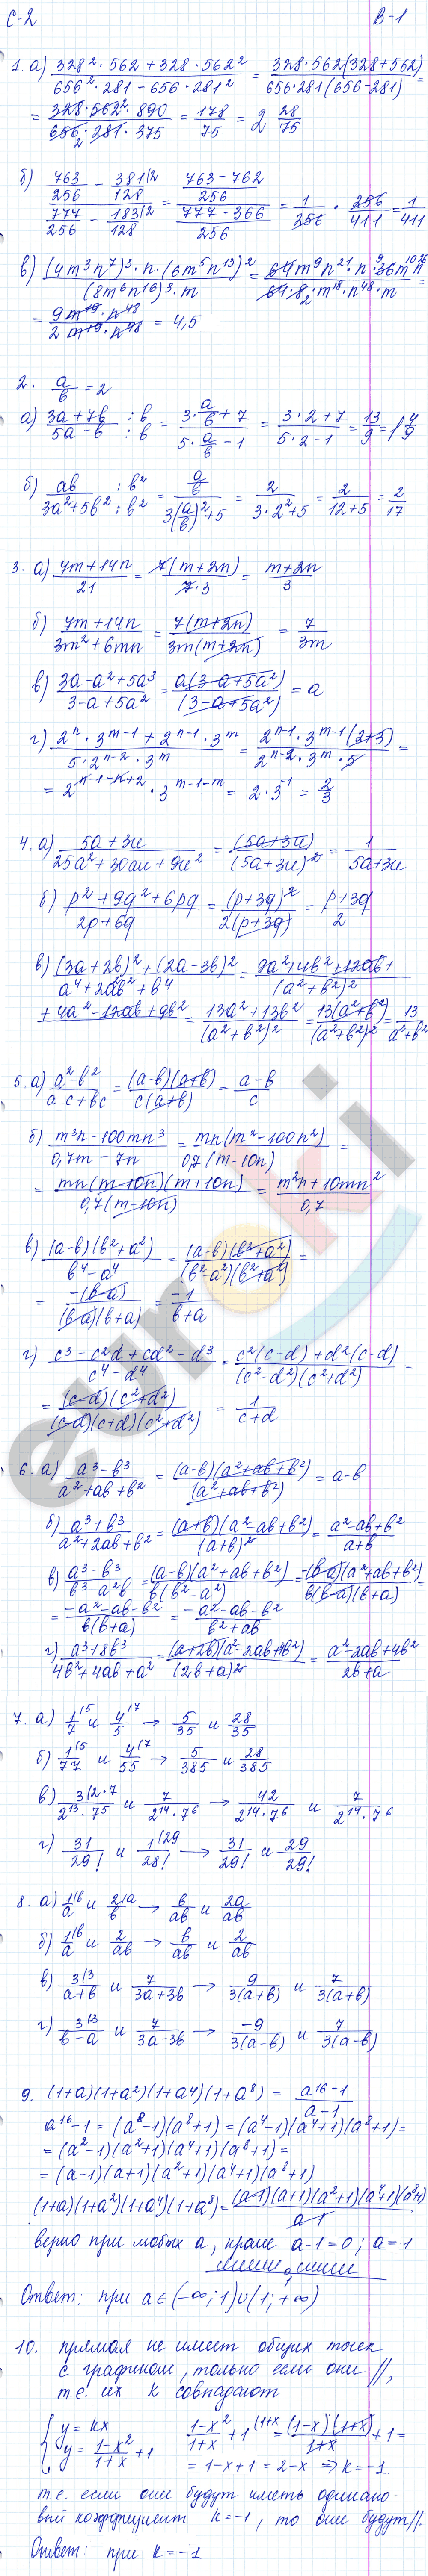 С-2 В-1
1. а) (328² · 562 + 328 · 562²)/(656² · 281 − 656 · 281²) = (328 · 562(328 + 562))/(656 · 281(656 − 281)) =
= (328 · 562² · 890)/(656₂ · 281 · 375) = 178/75 = 2 28/75
б) (763/256 − 381/128 |2)/(777/256 − 183/128 |2) = ((763 − 762)/256)/((777 − 366)/256) = 1/256 · 256/411 = 1/411
в) ((4m³n⁷)³ · n · (6m⁵n¹³)²)/((8m⁶n¹⁶)³ · m) = (64m⁹n²¹ · n · ⁹36m¹⁰n²⁶)/(64 · 8₂ · m¹⁸ · n⁴⁸ · m) =
= (9m¹⁹ · n⁴⁸)/(2m¹⁹ · n⁴⁸) = 4,5
2. a/в = 2
а) (3a + 7в : в)/(5a − в : в) = (3 · a/в + 7)/(5 · a/в − 1) = (3 · 2 + 7)/(5 · 2 − 1) = 13/9 = 1 4/9
б) (aв : в²)/(3a² + 5в² : в²) = (a/в)/(3(a/в)² + 5) = 2/(3 · 2² + 5) = 2/(12 + 5) = 2/17
3. а) (7m + 14n)/21 = (7(m + 2n))/(7 · 3) = (m + 2n)/3
б) (7m + 14n)/(3m² + 6mn) = (7(m + 2n))/(3m(m + 2n)) = 7/(3m)
в) (3a − a² + 5a³)/(3 − a + 5a²) = (a(3 − a + 5a²))/((3 − a + 5a²)) = a
г) (2ⁿ · 3ᵐ⁻¹ + 2ⁿ⁻¹ · 3ᵐ)/(5 · 2ⁿ⁻² · 3ᵐ) = (2ⁿ⁻¹ · 3ᵐ⁻¹(2 + 3))/(2ⁿ⁻² · 3ᵐ · 5) =
= 2ⁿ⁻¹⁻ⁿ⁺² · 3ᵐ⁻¹⁻ᵐ = 2 · 3⁻¹ = 2/3
4. а) (5a + 3u)/(25a² + 30au + 9u²) = (5a + 3u)/(5a + 3u)² = 1/(5a + 3u)
б) (p² + 9q² + 6pq)/(2p + 6q) = (p + 3q)²/(2(p + 3q)) = (p + 3q)/2
в) ((3a + 2в)² + (2a − 3в)²)/(a⁴ + 2a²в² + в⁴) = (9a² + 4в² + 12aв +
+ 4a² − 12aв + 9в²)/(a² + в²)² = (13a² + 13в²)/(a² + в²)² = (13(a² + в²))/(a² + в²)² = 13/(a² + в²)
5. а) (a² − в²)/(ac + вc) = ((a − в)(a + в))/(c(a + в)) = (a − в)/c
б) (m³n − 100mn³)/(0,7m − 7n) = (mn(m² − 100n²))/(0,7(m − 10n)) =
= (mn(m − 10n)(m + 10n))/(0,7(m − 10n)) = (m²n + 10mn²)/0,7
в) ((a − в)(в² + a²))/(в⁴ − a⁴) = ((a − в)(в² + a²))/((в² − a²)(в² + a²)) =
= (−(в − a))/((в − a)(в + a)) = −1/(в + a)
г) (c³ − c²d + cd² − d³)/(c⁴ − d⁴) = (c²(c − d) + d²(c − d))/((c² − d²)(c² + d²)) =
= ((c − d)(c² + d²))/((c − d)(c + d)(c² + d²)) = 1/(c + d)
6. а) (a³ − в³)/(a² + aв + в²) = ((a − в)(a² + aв + в²))/((a² + aв + в²)) = a − в
б) (a³ + в³)/(a² + 2aв + в²) = ((a + в)(a² − aв + в²))/(a + в)² = (a² − aв + в²)/(a + в)
в) (a³ − в³)/(в³ − a²в) = ((a − в)(a² + aв + в²))/(в(в² − a²)) = (−(в − a)(a² + aв + в²))/(в(в − a)(в + a)) =
= (−a² − aв − в²)/(в(в + a)) = (−a² − aв − в²)/(в² + aв)
г) (a³ + 8в³)/(4в² + 4aв + a²) = ((a + 2в)(a² − 2aв + 4в²))/(2в + a)² = (a² − 2aв + 4в²)/(2в + a)
7. а) 1/7 |5 и 4/5 |7 → 5/35 и 28/35
б) 1/77 |5 и 4/55 |7 → 5/385 и 28/385
в) 3/(2¹³ · 7⁵) |2 · 7 и 7/(2¹⁴ · 7⁶) → 42/(2¹⁴ · 7⁶) и 7/(2¹⁴ · 7⁶)
г) 31/29! и 1/28! |29 → 31/29! и 29/29!
8. а) 1/a |в и 2/в |a → в/aв и 2a/aв
б) 1/a |в и 2/aв → в/aв и 2/aв
в) 3/(a + в) |3 и 7/(3a + 3в) → 9/(3(a + в)) и 7/(3(a + в))
г) 3/(в − a) |3 и 7/(3a − 3в) → −9/(3(a − в)) и 7/(3(a − в))
9. (1 + a)(1 + a²)(1 + a⁴)(1 + a⁸) = (a¹⁶ − 1)/(a − 1)
a¹⁶ − 1 = (a⁸ − 1)(a⁸ + 1) = (a⁴ − 1)(a⁴ + 1)(a⁸ + 1) =
= (a² − 1)(a² + 1)(a⁴ + 1)(a⁸ + 1) =
= (a − 1)(a + 1)(a² + 1)(a⁴ + 1)(a⁸ + 1)
(1 + a)(1 + a²)(1 + a⁴)(1 + a⁸) = ((a − 1)(a + 1)(a² + 1)(a⁴ + 1)(a⁸ + 1))/(a − 1)
верно при любых a, кроме a − 1 = 0; a = 1
1
Ответ: при a ∈ (−∞; 1) ∪ (1; +∞)
10. прямая не имеет общих точек
с графиком, только если они //,
т.е. их k совпадают
{ y = kx
y = (1 − x²)/(1 + x) + 1
(1 − x²)/(1 + x) + 1 |1+x = ((1 − x)(1 + x))/(1 + x) + 1 =
= 1 − x + 1 = 2 − x ⇒ k = −1
т.е. если они будут иметь одинако-
вый коэффициент k = −1, то они будут //.
Ответ: при k = −1
euroki